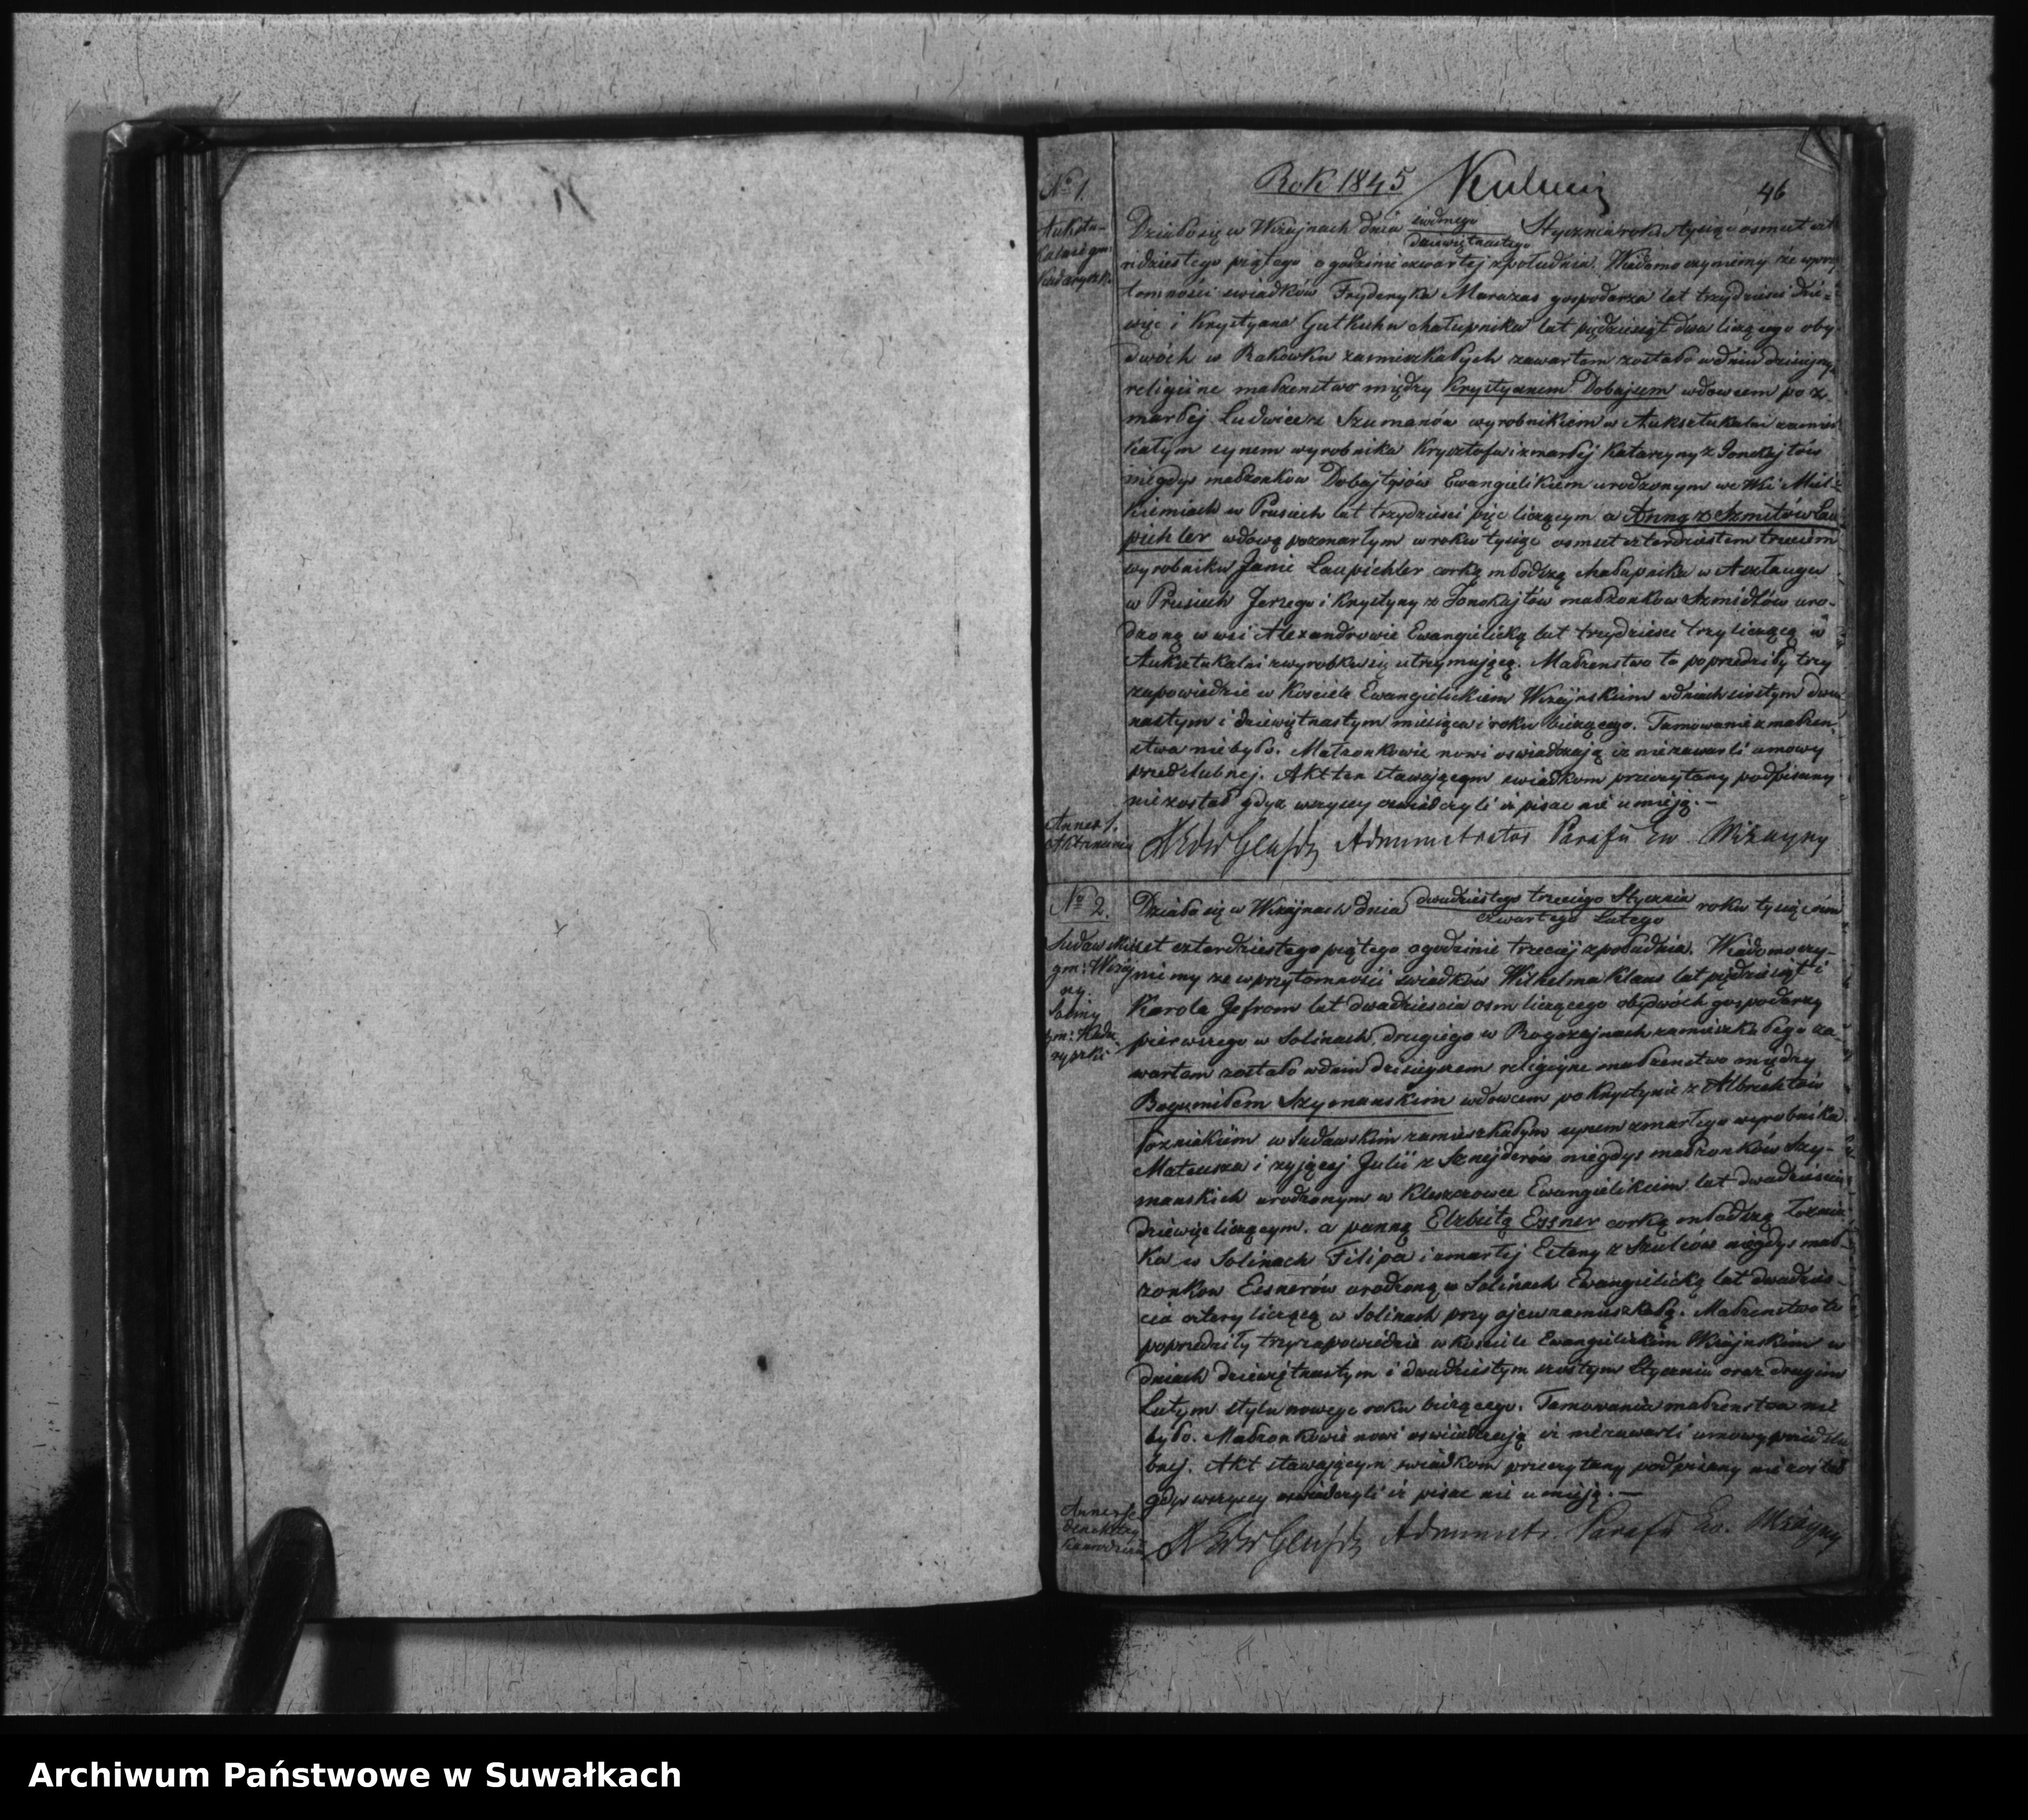 Rok 1845
46
No 1.
Działo się w Wiżajnach dnia siódmego / dziewiętnastego Stycznia roku tysiąc osmset czte
rdziestego piątego o godzinie czwartej z południa. Wiadomo czyniemy że w przy
tomności swiadków Fryderyka Marazas gospodarza lat trzydzieści dzie-
więć i Krystyana Gutkuhn chałupnika lat pędziesiąt dwa liczącego oby
dwóch w Rakowku zamieszkałych zawartem zostało w dniu dzisiejszym
religijne małżenstwo między Krystyanem Dobajsem wdowcem po z
marłej Ludwice z Szumanów wyrobnikiem w Auksztukalni zamies
kałym synem wyrobnika Krysztofa i zmarłej Katarzyny z
niegdys małżonkow Ewangielikiem urodzonym we Wsi
w Prusach lat trzydzieści pięć liczącym a Anną z Szmitów Lau
pichler wdową po zmarłym w roku tysiąc osmset czterdziestem trzeciem
wyrobniku Janie Laupichler corką młodszą chałupnika w
w Prusiech Jerzego i Krystyny z małżonkow Szmidtów uro-
dzoną w wsi Alexandrowie Ewangielicką lat trzydziesci trzy liczącą w
Auksztukalni z wyrobku się utrzymującą. Małżenstwo to poprzedziły trzy
zapowiedzie w Kościele Ewangielickiem Wiżajnskim w dniach szostym dwu
nastym i dziewiętnastym miesiąca i roku bieżącego. Tamowanie małżen
stwa nie było. Małżonkowie nowi oswiadczają iż nie zawarli umowy
przedslubnej. Akt ten stawającym swiadkom przeczytany podpisany
nie został gdyż wszyscy oswiadczyli iż pisac nie umieją.—
Administrator Parafii Ew. Wiżayny
No 2.
Działo się w Wiżajnach dnia dwudziestego trzeciego Stycznia / czwartego Lutego roku tysiąc osm
set czterdziestego piątego o godzinie trzeciej z południa. Wiadomo czy-
niemy ze w przytomności swiadków Wilhelma Klaus lat pędziesiąt i
Karola Jefrom lat dwadziescia osm liczącego obydwóch gospodarzy
pierwszego w Solinach drugiego w Rogożajnach zamieszkałego za-
wartem zostało w dniu dzisiejszem religijne małżenstwo między
Bogumiłem Szymanskim wdowcem po Krystynie z Albrechtów
łoznikiem w Sudawskim zamieszkałym synem zmarłego wyrobnika
Mateusza i zyjącej Julii z Sznejderów niegdys małżonków Szy-
manskich urodzonym w Kleszczowce Ewangielikiem lat dwadziescia
dziewięć liczącym. a panną Elzbietą Essner corką młodszą łoznin
ka w Solinach Filipa i zmarłej z Szulców niegdys mał-
żonkow Essnerów urodzoną w Solinach Ewangielicką lat dwadzies-
cia cztery liczącą w Solinach przy ojcu zamieszkałą. Małżenstwo to
poprzedziły trzy zapowiedzie w kościele Ewangielickim Wiżajnskim w
dniach dziewiętnastym i dwudziestym szostym Stycznia oraz drugim
Lutym stylu nowego roku bieżącego. Tamowania małżenstwa nie
było. Małżonkowie nowi oswiadczają iż nie zawarli umowy przedslu
bnej. Akt stawającym swiadkom przeczytany podpisany nie został
gdyż wszyscy oswiadczyli iż pisac nie umieją.—
Administ. Parafii Ew. Wiżayny
Archiwum Państwowe w Suwałkach